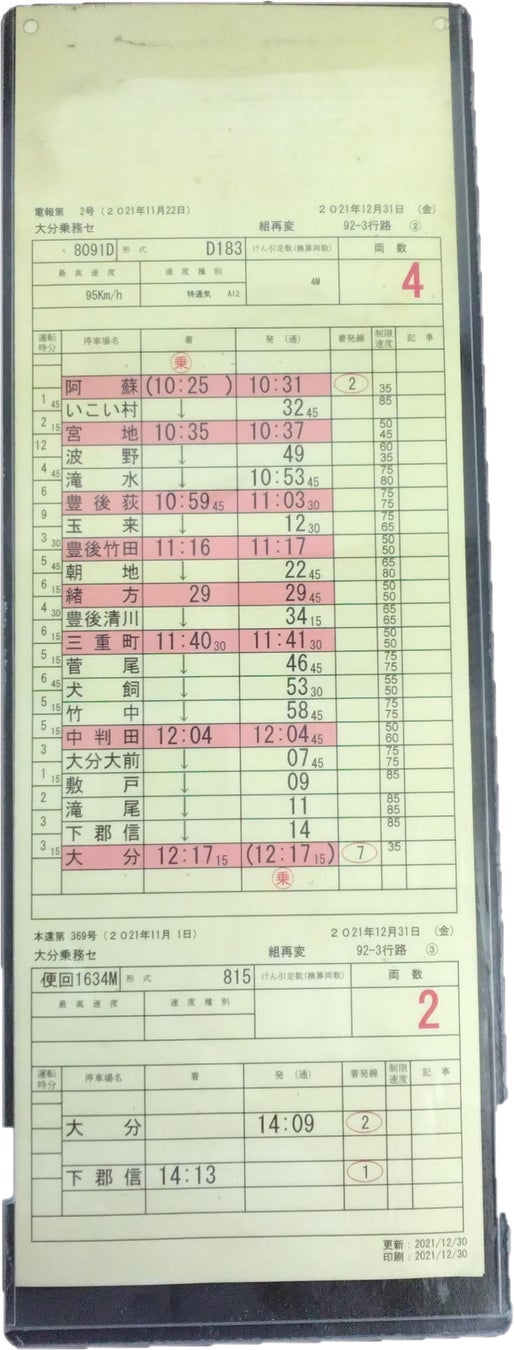 電報第 2号(2021年11月22日) 2021年12月31日 (金)
大分乗務セ 組再変 92-3行路 ②
8091D 形式 D183 けん引定数(換算両数) 両数
最高速度 速度種別 4M 4
95Km/h 特通気 A12
運転時分 停車場名 着 発(通) 着発線 制限速度 記事
乗
阿蘇 (10:25 ) 10:31 2 35
1 45 いこい村 ↓ 32 45 85
2 15 宮地 10:35 10:37 50 45
12 波野 ↓ 49 60 35
4 45 滝水 ↓ 10:53 45 75 80
6 豊後荻 10:59 45 11:03 30 75 75
9 玉来 ↓ 12 30 75 65
3 30 豊後竹田 11:16 11:17 50 50
5 45 朝地 ↓ 22 45 65 80
6 15 緒方 29 29 45 50 50
4 30 豊後清川 ↓ 34 15 65 65
6 15 三重町 11:40 30 11:41 30 50 50
5 15 菅尾 ↓ 46 45 75 75
6 45 犬飼 ↓ 53 30 55 50
5 15 竹中 ↓ 58 45 75 75
5 15 中判田 12:04 12:04 45 50 60
3 大分大前 ↓ 07 45 75 75
1 15 敷戸 ↓ 09 85
2 滝尾 ↓ 11 85 85
3 下郡信 ↓ 14 85
3 15 大分 12:17 15 (12:17 15) 7 35
乗
本達第 369号(2021年11月 1日) 2021年12月31日 (金)
大分乗務セ 組再変 92-3行路 ③
便回1634M 形式 815 けん引定数(換算両数) 両数
最高速度 速度種別 2
運転時分 停車場名 着 発(通) 着発線 制限速度 記事
大分 14:09 2
下郡信 14:13 1
更新:2021/12/30
印刷:2021/12/30